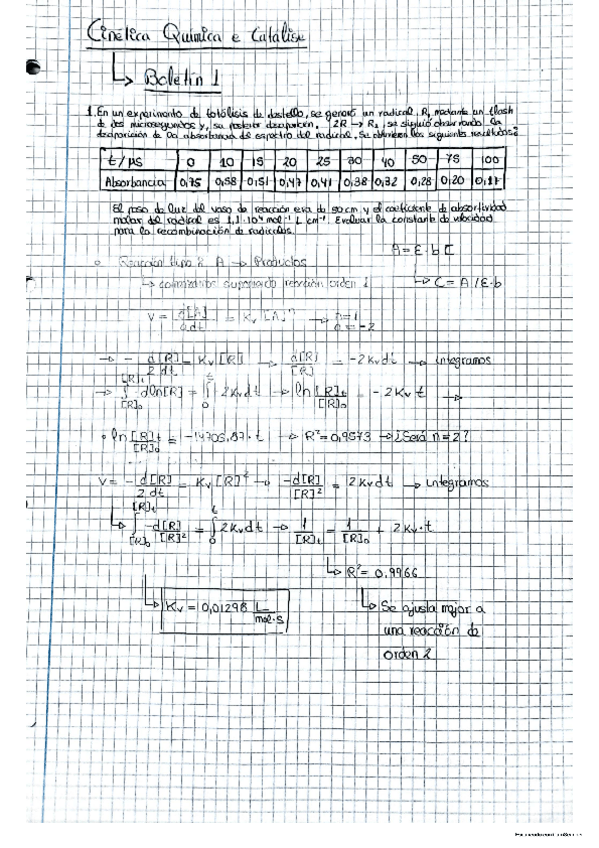 Cinética Química e Catálise
Boletín 1
1. En un experimento de fotólisis de destello, se generó un radical, R, mediante un flash
de dos microsegundos y, su posterior desaparición, 2R → R₂, se siguió observando la
desaparición de la absorbancia del espectro del radical. Se obtuvieron los siguientes resultados:
t/μs 0 10 15 20 25 30 40 50 75 100
Absorbancia 0,75 0,58 0,51 0,47 0,41 0,38 0,32 0,28 0,20 0,17
El paso de luz del vaso de reacción era de 50 cm y el coeficiente de absortividad
molar del radical es 1,1·10⁴ mol⁻¹ L cm⁻¹. Evaluar la constante de velocidad
para la recombinación de radicales.
A = ε·b C
Reacción tipo: A → Productos
↳ C = A/ε·b
↳ comenzamos suponiendo reacción orden 1
V = d[A]/a dt = Kv [A]ⁿ → n=1 a=-2
→ - d[R]/2 dt = Kv [R] → d[R]/[R] = -2Kv dt → integramos
→ ∫ dln[R] = ∫ -2Kv dt → ln [R]t/[R]₀ = -2Kv t →
ln [R]t/[R]₀ = -14705,87·t → R² = 0,9573 → ¿Será n=2?
V = - d[R]/2 dt = Kv [R]² → -d[R]/[R]² = 2Kv dt → integramos
↳ ∫ -d[R]/[R]² = ∫ 2Kv dt → 1/[R]t = 1/[R]₀ + 2Kv·t
↳ R² = 0,9966
↳ Kv = 0,01298 L/mol·s
↳ Se ajusta mejor a
una reacción de
orden 2